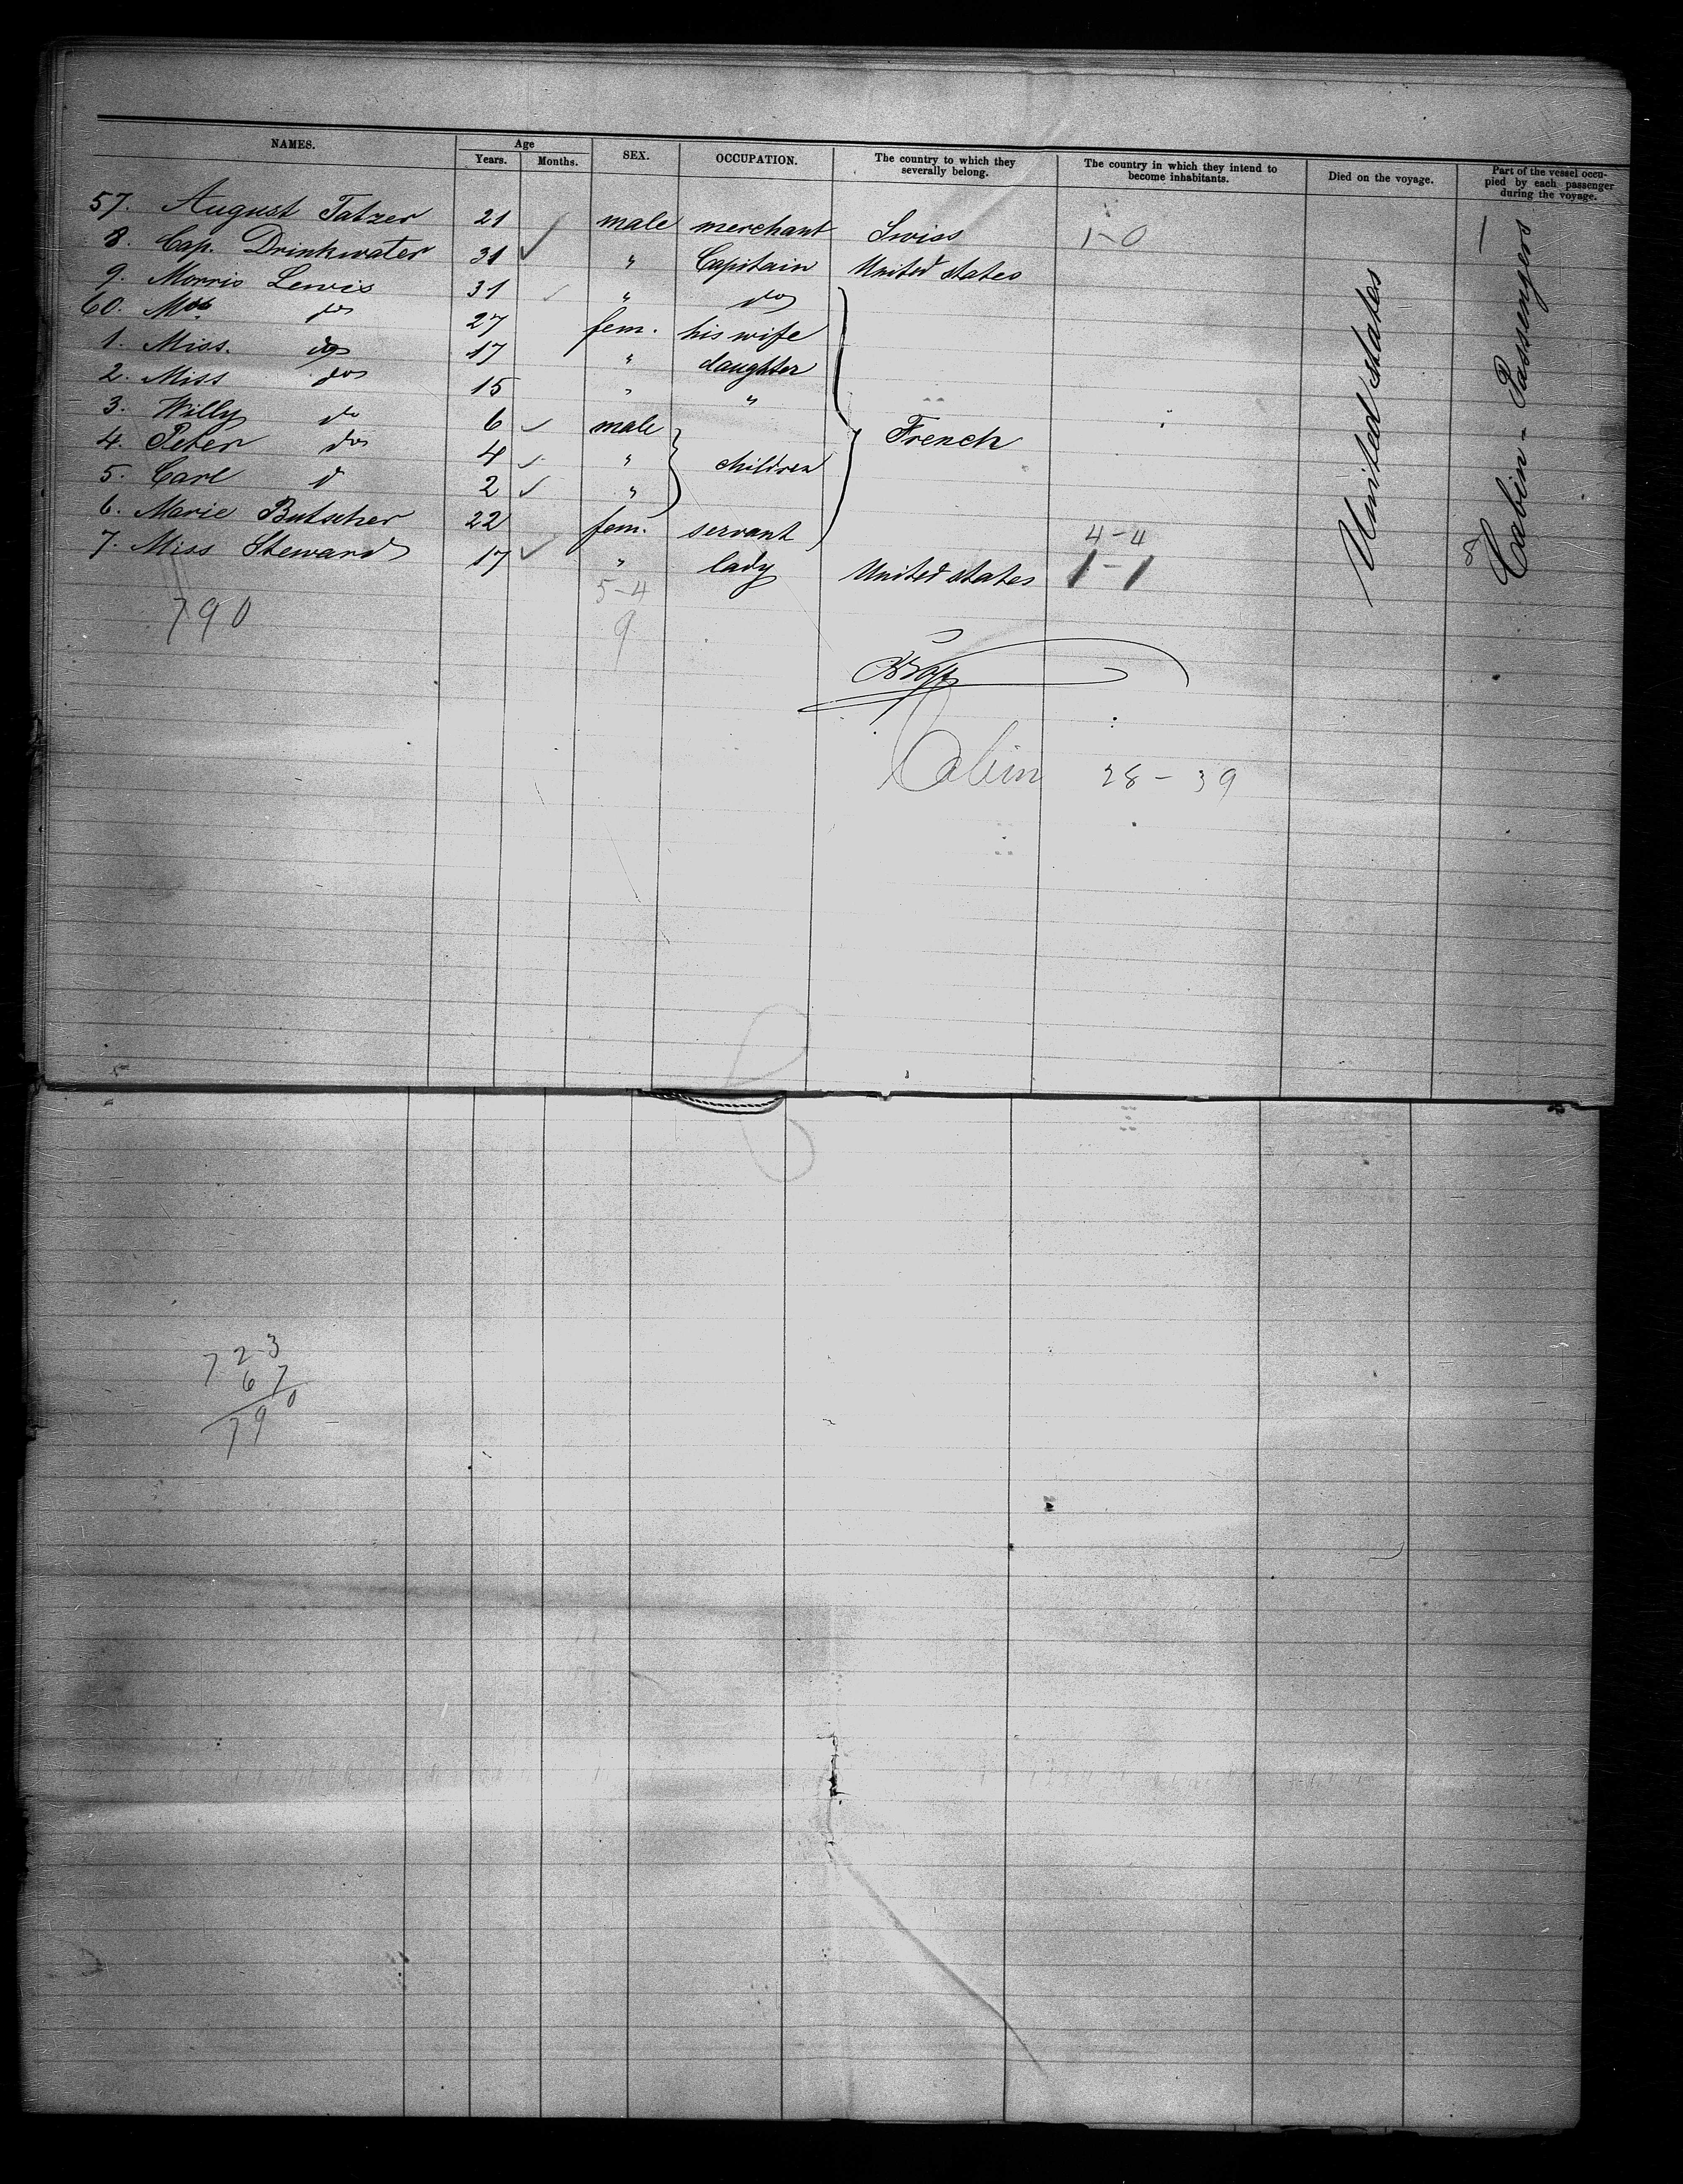 NAMES. Age Years. Months. SEX. OCCUPATION. The country to which they severally belong. The country in which they intend to become inhabitants. Died on the voyage. Part of the vessel occupied by each passenger during the voyage.
57. August Tatzer 21 male merchant Swiss 1-0
8. Cap. Drinkwater 31 " Capitain United states
9. Morris Lewis 31 " do
60. Mrs do 27 fem. his wife
1. Miss. do 17 " daughter
2. Miss do 15 " "
3. Willy do 6 male
French
4. Peter do 4 " children
5. Carl d 2 "
6. Marie Butscher 22 fem. servant
4-4
7. Miss Steward 17 " lady United states 1-1
United states
Cabin - Passengers
5-4
790 9
Cabin 28-39
723
67
790